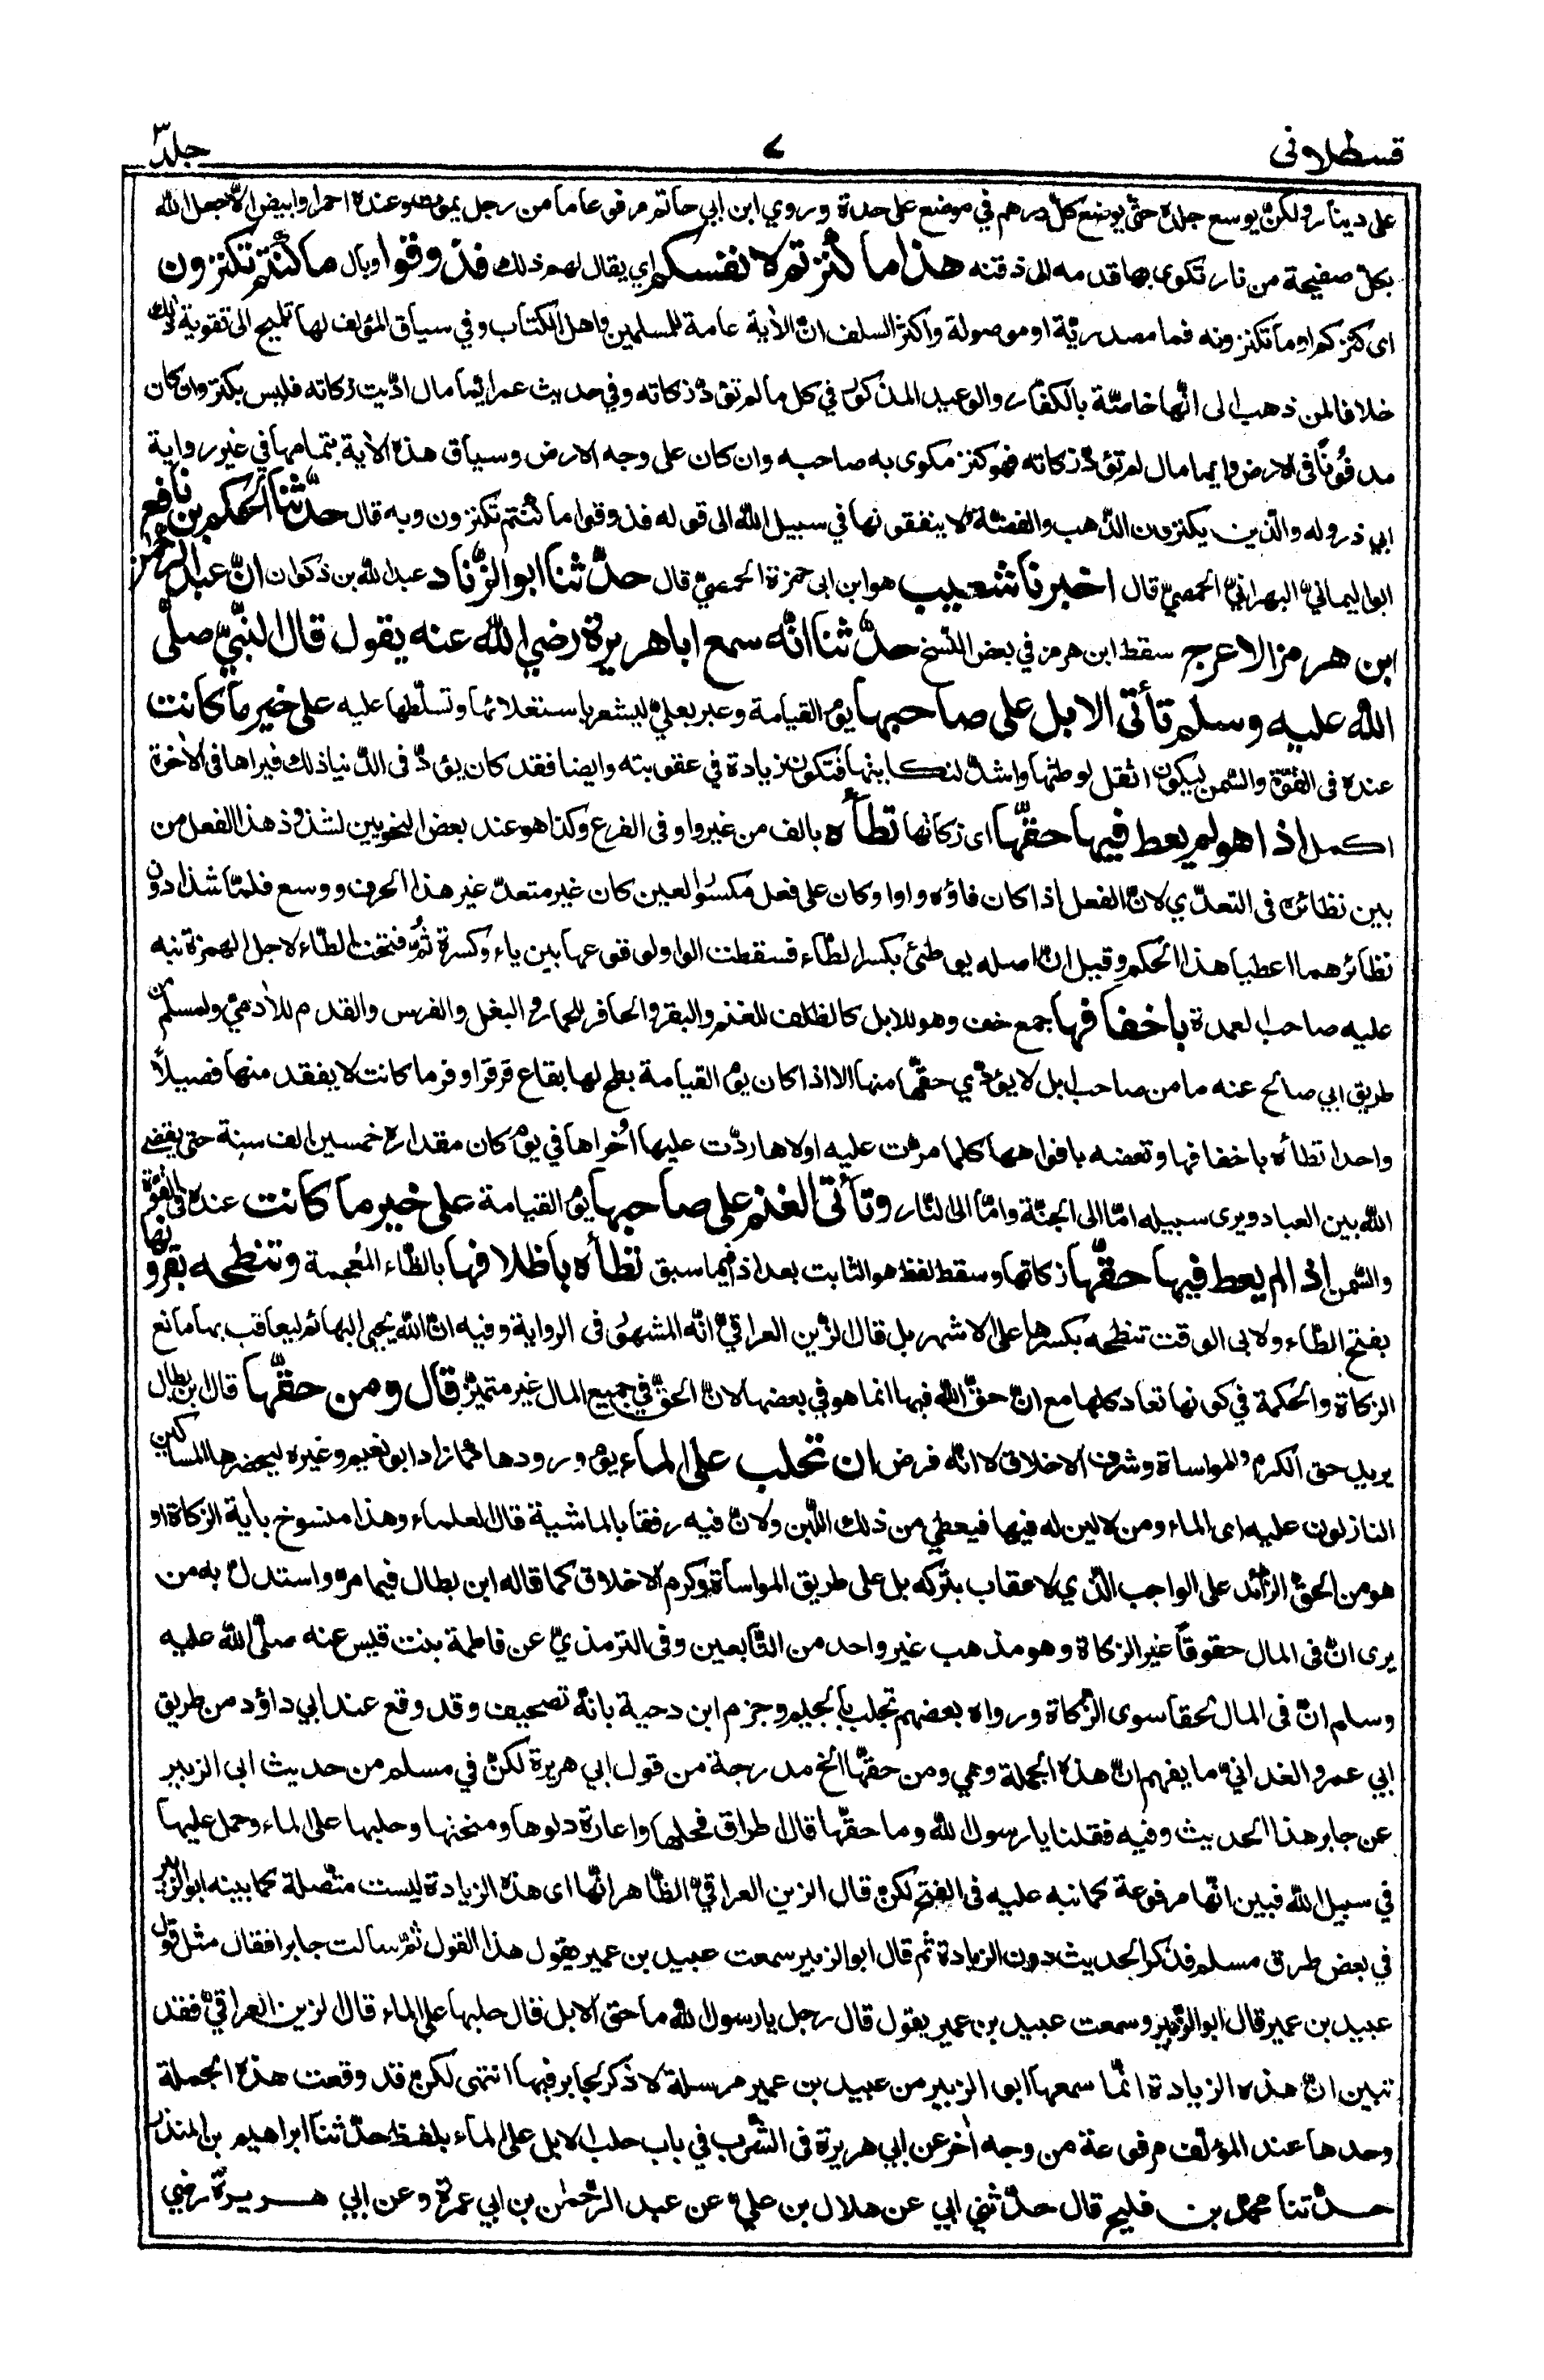 قسطلانى ٧ جلد٣
على دينار ولكن يوسع جلده حتّى يوضع كلّ درهم في موضع على حدة وروي ابن ابي حاتم مرفوعا ما من رجل يموت وعنده احمر او ابيض الّا جعل اللّٰه
بكلّ صفيحة من نار تكوى بها قدمه الى ذقنه هذا ما كنزتم لانفسكم اي يقال لهم ذلك فذوقوا وبال ما كنتم تكنزون
اى كنزكم او ما تكنزونه فما مصدريّة او موصولة واكثر السلف انّ الأية عامة للمسلمين واهل الكتاب وفي سياق المؤلف لها تلميح الى تقوية ذلك
خلافا لمن ذهب الى انّها خاصّة بالكفّار والوعيد المذكور في كل ما لم تؤدّ زكاته وفي حديث عمر ايّما مال ادّيت زكاته فليس بكنز وان كان
مدفُونًا فى الارض وايما مال لم تؤدّ زكاته فهو كنز مكوى به صاحبه وان كان على وجه الارض وسياق هذه الأية بتمامها في غير رواية
ابي ذر وله والّذين يكنزون الذّهب والفضّة ولا ينفقونها في سبيل اللّٰه الى قوله فذوقوا ما كنتم تكنزون وبه قال حدّثنا الحكم بن نافع
ابو اليمانيّ البهرانيّ الحمصيّ قال اخبرنا شعيب هو ابن ابى حمزة الحمصيّ قال حدّثنا ابو الزّناد عبد اللّٰه بن ذكوان انّ عبد الرحمٰن
ابن هرمز الاعرج سقط ابن هرمز في بعض النّسخ حدّثنا انّه سمع ابا هريرة رضي اللّٰه عنه يقول قال النّبيّ صلّى
اللّٰه عليه وسلم تأتى الابل على صاحبها يوم القيامة وعبر بعلى ليشعر باستعلائها وتسلّطها عليه على خير ما كانت
عنده فى القوّة والسّمن ليكون اثقل لوطئها واشدّ لنكايتها فتكون زيادة في عقوبته وايضا فقد كان يودّ فى الدّنيا ذلك فيراها فى الأخرة
اكمل اذا هو لم يعط فيها حقّها اى زكاتها تطأه بالف من غير واو وفى الفرع وكذا هو عند بعض النحويين لشذوذ هذا الفعل من
بين نظائره فى التعدّي لانّ الفعل اذا كان فاؤه واوا وكان على فعل مكسور العين كان غير متعدّ غير هذا الحرف ووسع فلمّا شذا دون
نظائرهما اعطيا هذا الحكم وقيل انّ اصله يوطئ بكسر الطّاء فسقطت الواو لوقوعها بين ياء وكسرة ثُمّ فتحت الطّاء لاجل الهمزة نبه
عليه صاحب العمدة باخفافها جمع خف وهو للابل كالظلف للغنم والبقر والحافر للحمار والبغل والفرس والقدم للأدميّ ولمسلم من
طريق ابي صالح عنه ما من صاحب ابل لا يؤدّي حقّها منها الا اذا كان يوم القيامة بطح لها بقاع قرقر اوفر ما كانت لا يفقد منها فصيلاً
واحدا تطأه باخفافها وتعضه بافواهها كلما مرّت عليه اولاها ردّت عليها اُخراها في يوم كان مقداره خمسين الف سنة حتى يقضى
اللّٰه بين العباد ويرى سبيله امّا الى الجنّة وامّا الى النّار وتأتى الغنم على صاحبها يوم القيامة على خير ما كانت عنده فى القوّة
والسّمن اذا لم يعط فيها حقّها زكاتها وسقط لفظ هو الثابت بعد اذا فيما سبق تطأه باظلافها بالظّاء المُعجمة وتنطحه بقرونها
بفتح الطّاء ولابى الوقت تنطحه بكسرها على الاشهر بل قال الزّين العراقيّ انّه المشهُور فى الرواية وفيه انّ اللّٰه يحيى البهائم ليعاقب بها مانع
الزكاة والحكمة في كونها تعاد كلها مع انّ حقّ اللّٰه فيها انما هو في بعضها لانّ الحقّ في جميع المال غير متميّز قال ومن حقّها قال ابن بطال
يريد حق الكرم والمواساة وشرف الاخلاق لا انّه فرض ان تحلب على الماء يوم ورودها كما زاد ابو نعيم وغيره ليحضرها المساكين
النازلون عليه اى الماء ومن لا لبن له فيها فيعطي من ذلك اللّبن ولانّ فيه رفقا بالماشية قال العلماء وهذا منسوخ بأية الزكاة او
هو من الحقّ الزّائد على الواجب الذّي لا عقاب بتركه بل على طريق المواساة وكرم الاخلاق كما قاله ابن بطال فيما مرّ واستدل به من
يرى انّ فى المال حقوقاً غير الزكاة وهو مذهب غير واحد من التّابعين وفى الترمذيّ عن فاطمة بنت قيس عنه صلّى اللّٰه عليه
وسلم انّ فى المال لحقا سوى الزّكاة ورواه بعضهم تجلب بالجيم وجزم ابن دحية بانّه تصحيف وقد وقع عند ابي داؤد من طريق
ابي عمرو الغدانيّ ما يفهم انّ هذه الجملة وهي ومن حقّها الخ مدرجة من قول ابي هريرة لكنّ في مسلم من حديث ابى الزبير
عن جابر هذا الحديث وفيه فقلنا يا رسول اللّٰه وما حقّها قال اطراق فحلها واعارة دلوها ومنحتها وحلبها على الماء وحمل عليها
في سبيل اللّٰه فبين انّها مرفوعة كما نبه عليه فى الفتح لكن قال الزين العراقيّ الظّاهر انّها اى هذه الزيادة ليست متّصلة كما بينه ابو الزبير
في بعض طرق مسلم فذكر الحديث دون الزيادة ثم قال ابو الزبير سمعت عبيد بن عمير يقول هذا القول ثمّ سألت جابرا فقال مثل قول
عبيد بن عمير قال ابو الزّبير وسمعت عبيد بن عمير يقول قال رجل يا رسول اللّٰه ما حق الابل قال حلبها على الماء قال الزين العراقيّ فقد
تبين انّ هذه الزيادة انّما سمعها ابو الزبير من عبيد بن عمير مرسلة لا ذكر لجابر فيها انتهى لكن قد وقعت هذه الجملة
وحدها عند المؤلّف مرفوعة من وجه اٰخر عن ابي هريرة فى الشّرب في باب حلب الابل على الماء بلفظ حدّثنا ابراهيم بن المنذر
حدّثنا محمّد بن فليح قال حدّثني ابي عن هلال بن عليّ عن عبد الرّحمٰن بن ابي عمرة وعن ابي هريرة رضي